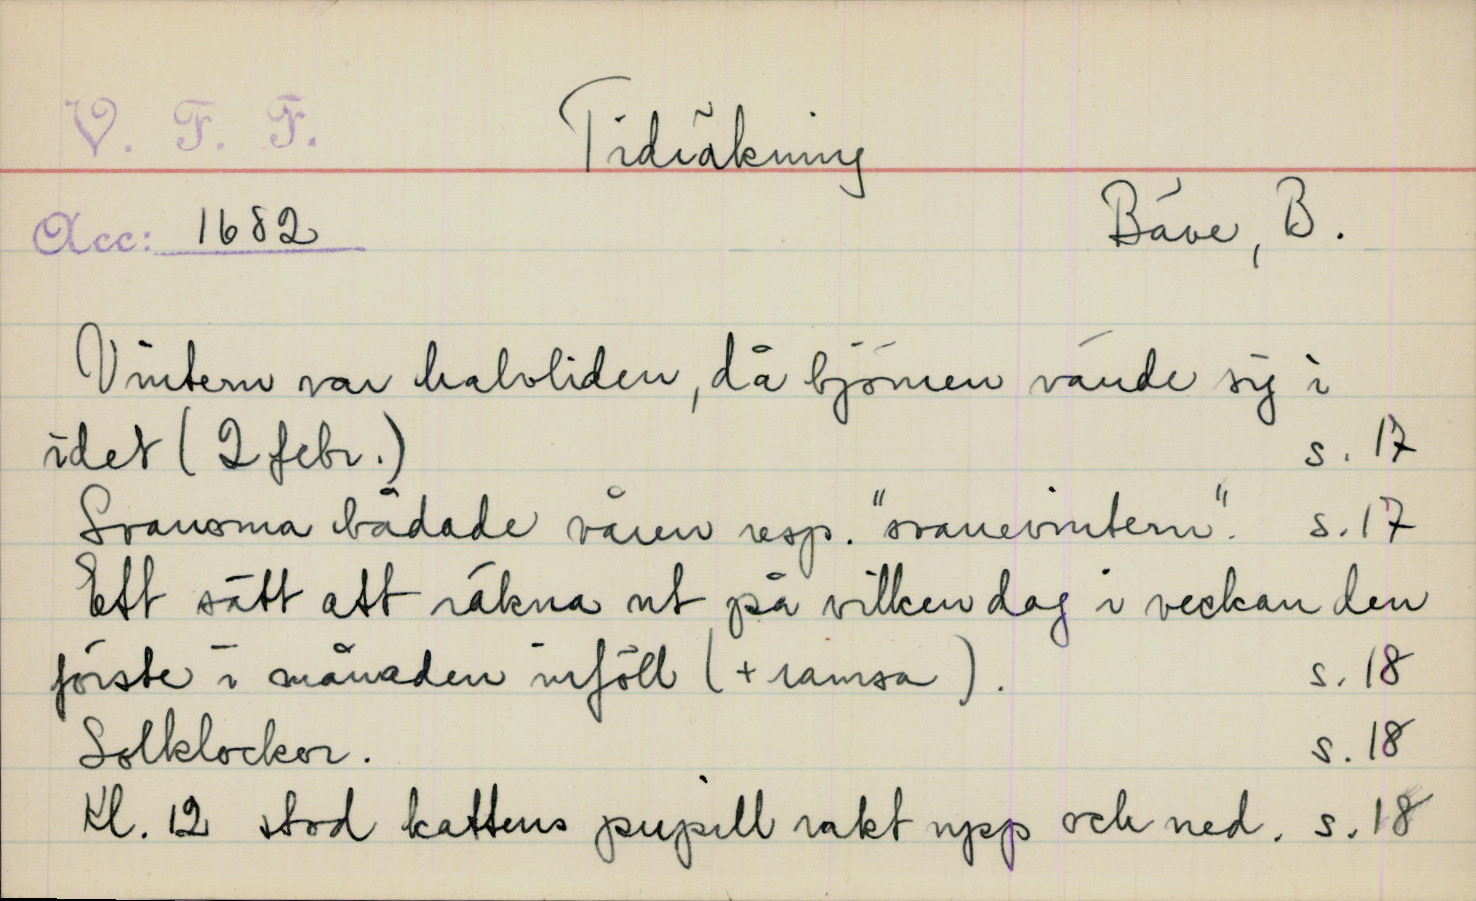 V. F. F.
Tidräkning
Acc: 1682
Bäve, B.
Vintern var halvliden, då björnen vände sig i
idet (2 febr.) s. 17
Svanorna bådade våren resp. "svanevintern". s. 17
Ett sätt att räkna ut på vilken dag i veckan den
förste i månaden inföll (+ ramsa). s. 18
Solklockor. s. 18
Kl. 12 stod kattens pupill rakt upp och ned. s. 18